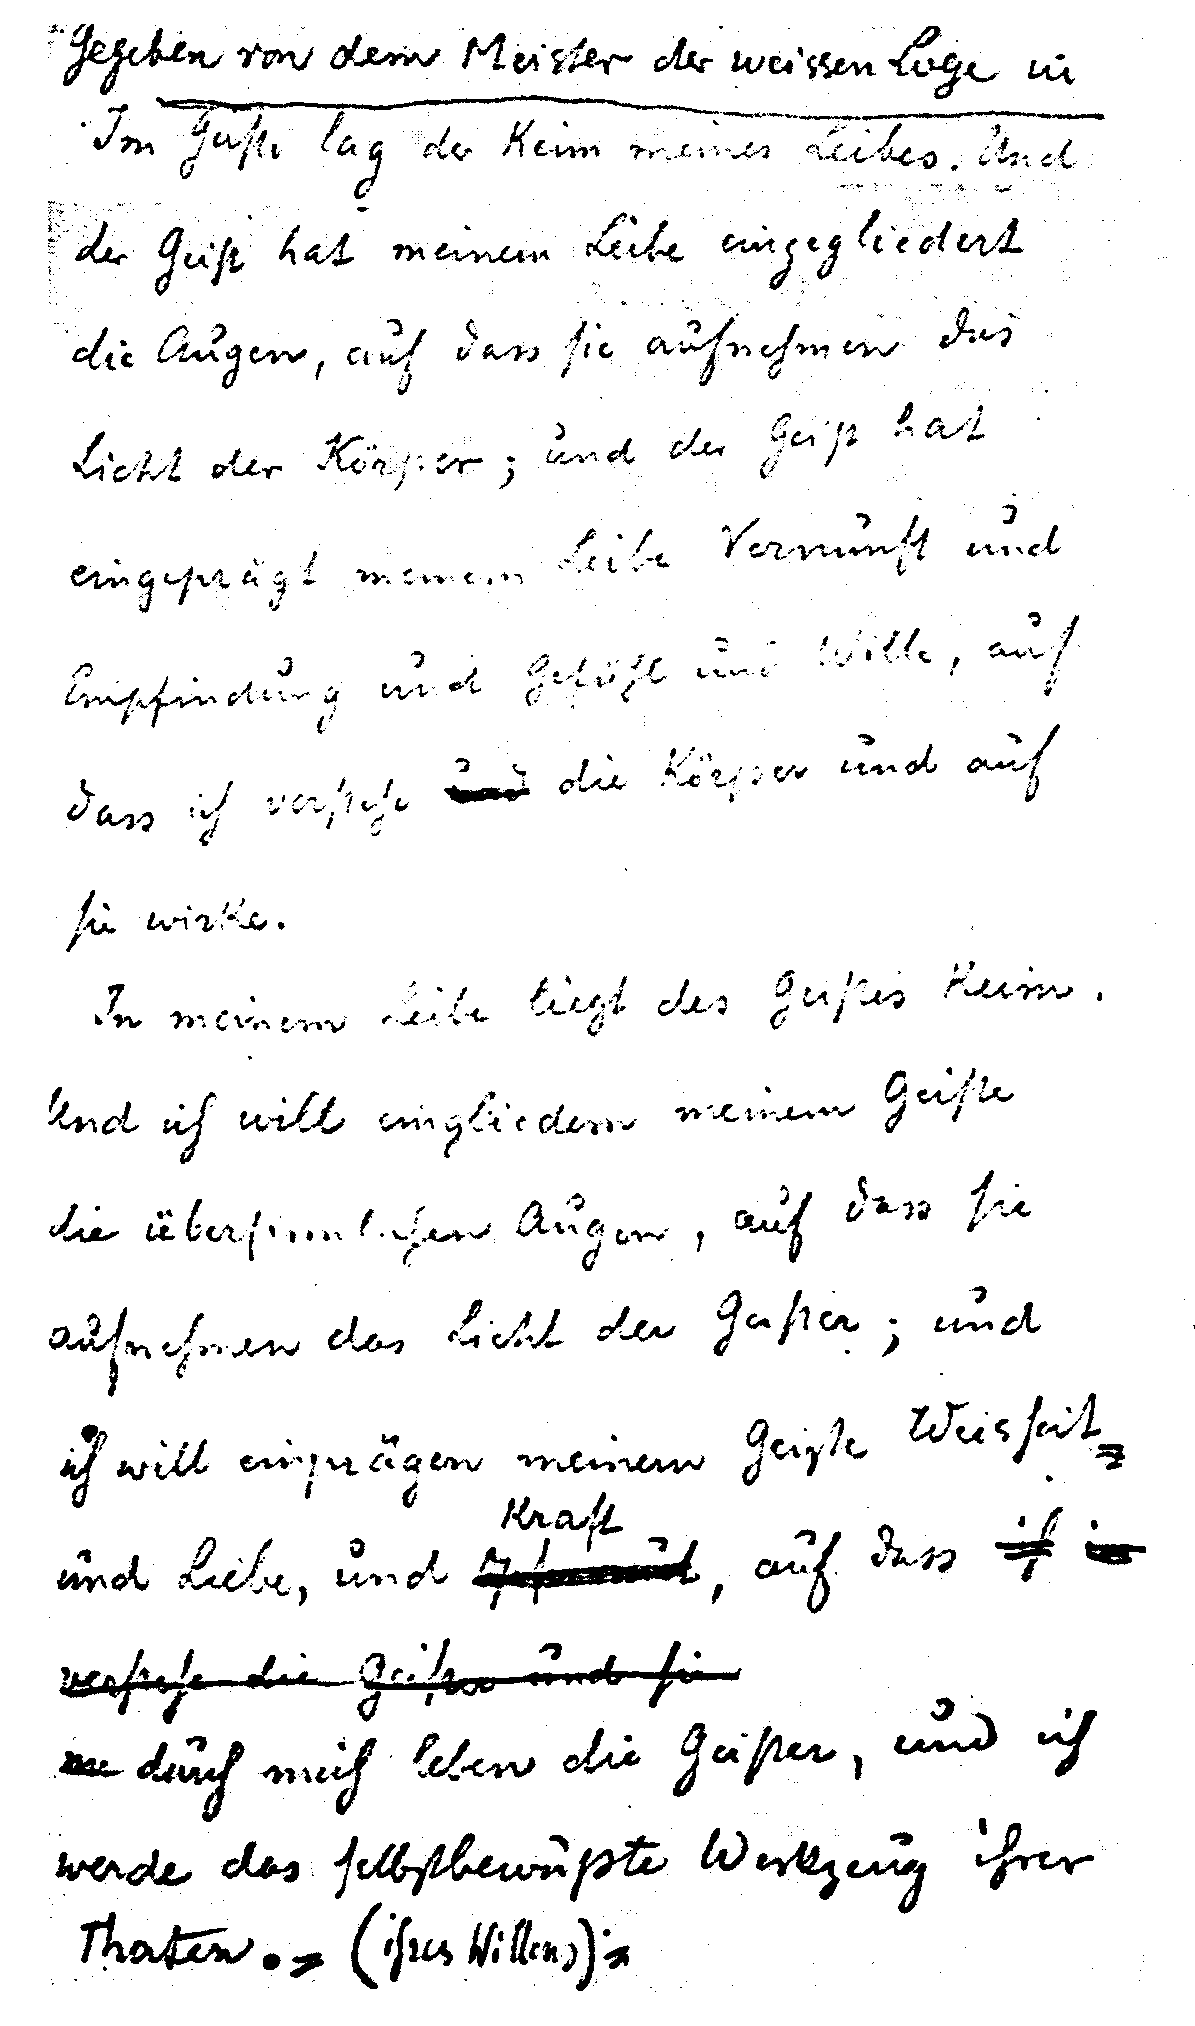 Gegeben von dem Meister der weissen Loge in
Im Geiste lag der Keim meines Leibes. Und
der Geist hat meinem Leibe eingegliedert
die Augen, auf dass sie aufnehmen das
Licht der Körper; und der Geist hat
eingeprägt meinem Leibe Vernunft und
Empfindung und Gefühl und Wille, auf
dass ich verstehe und die Körper und auf
sie wirke.
In meinem Leibe liegt des Geistes Keim.
Und ich will eingliedern meinem Geiste
die übersinnlichen Augen, auf dass sie
aufnehmen das Licht der Geister; und
ich will einprägen meinem Geiste Weisheit
Kraft
und Liebe, und, auf dass ich in
verstehe die Geister und sie
durch mich leben die Geister, und ich
werde das selbstbewußte Werkzeug ihrer
Thaten. = (ihres Willens) =